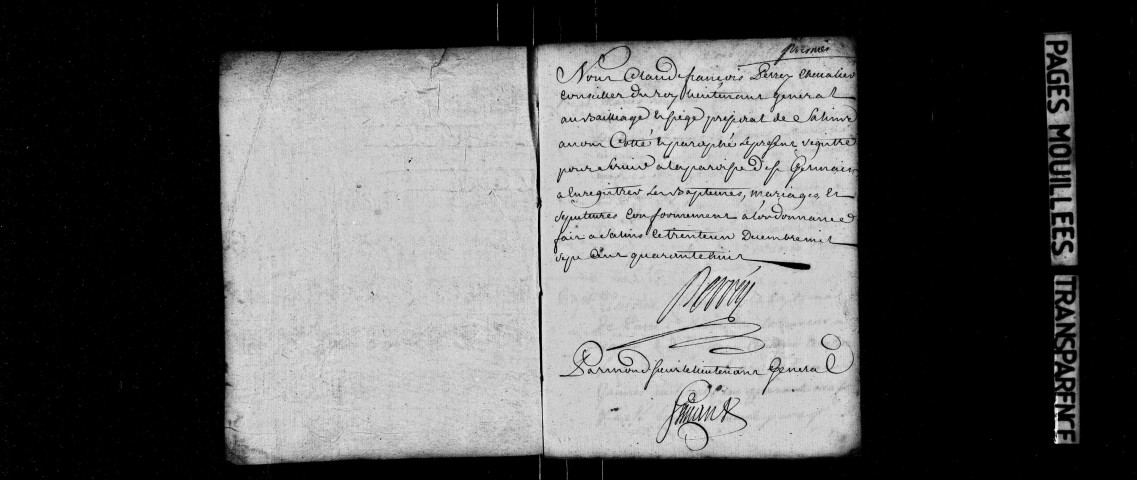 premier
Nous Claud françois Perrey Chevalier
Conseiller du roy lieutenant general
au Bailliage et siége presidial de Salins
avons Cotté et paraphé le present registre
pour servir a la paroisse de st Germain
a enregistrer les Baptemes, mariages, et
sepultures conformement à l'ordonnance
fait a Salins le trente un Decembre mil
sept Cent quarante huit
Perrey
Par mond sieur le lieutenant General
PAGES MOUILLEES
TRANSPARENCE